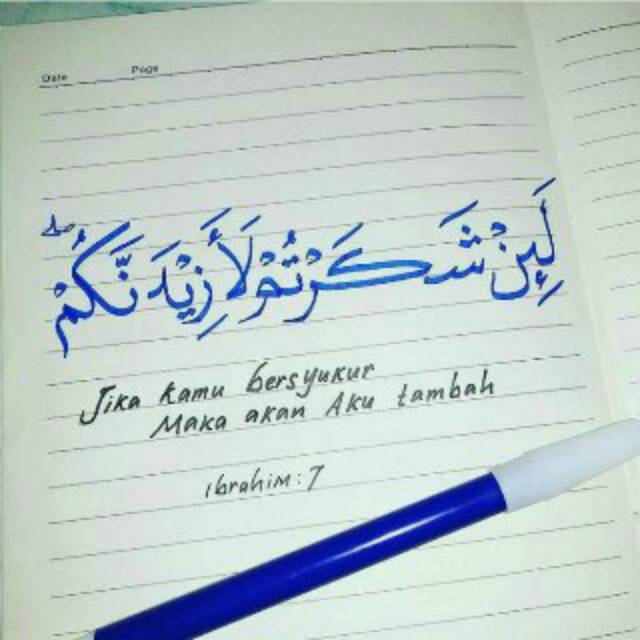 Date Page
لَئِنْ شَكَرْتُمْ لَأَزِيْدَنَّكُمْ ۖ
Jika kamu bersyukur
Maka akan Aku tambah
Ibrahim: 7